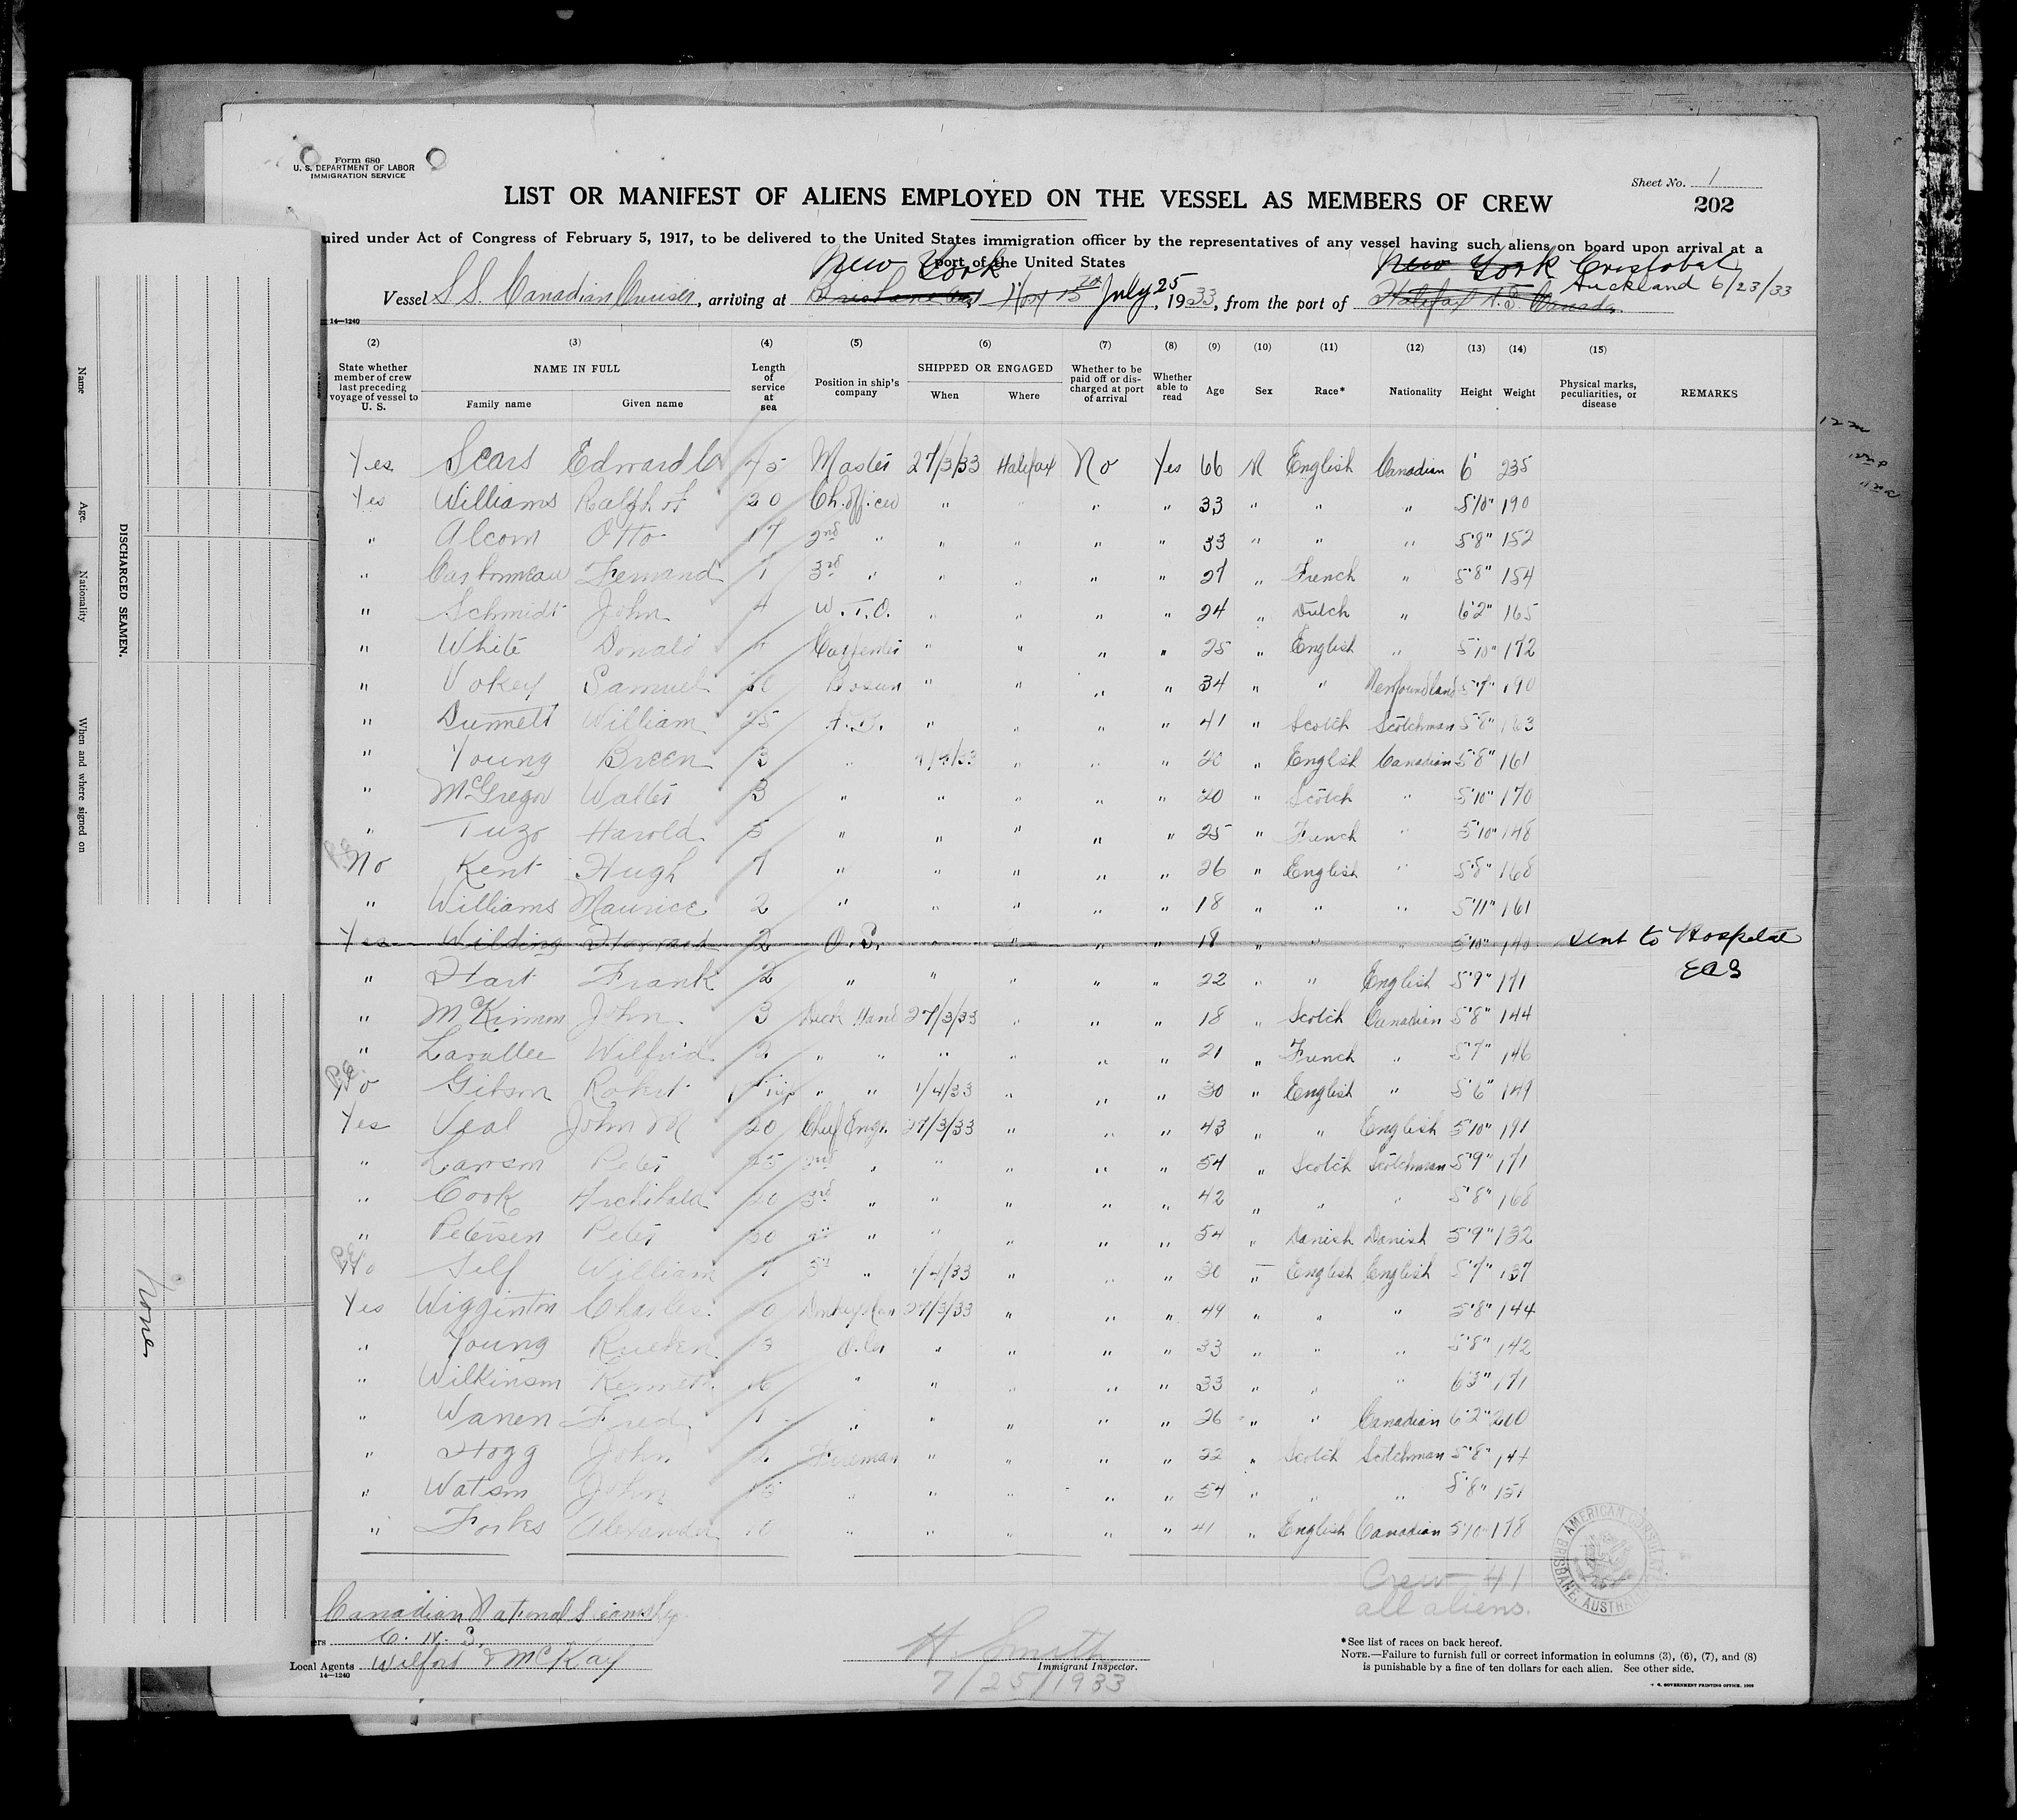 Form 680
U. S. DEPARTMENT OF LABOR
IMMIGRATION SERVICE
Sheet No. 1
LIST OR MANIFEST OF ALIENS EMPLOYED ON THE VESSEL AS MEMBERS OF CREW
202
uired under Act of Congress of February 5, 1917, to be delivered to the United States immigration officer by the representatives of any vessel having such aliens on board upon arrival at a
port of the United States
New York New York Cristobal
Auckland 6/23/33
Vessel S.S. Canadian Cruiser, arriving at Brisbane July 25, 1933, from the port of Halifax N.S. Canada
14—1240
(2) (3) (4) (5) (6) (7) (8) (9) (10) (11) (12) (13) (14) (15)
State whether member of crew last preceding voyage of vessel to U. S. NAME IN FULL Family name Given name Length of service at sea Position in ship's company SHIPPED OR ENGAGED When Where Whether to be paid off or discharged at port of arrival Whether able to read Age Sex Race* Nationality Height Weight Physical marks, peculiarities, or disease REMARKS
Yes Sears Edward 45 Master 27/3/33 Halifax No Yes 66 M English Canadian 6' 235
Yes Williams Ralph 20 Ch. officer " " " 33 " " " 5'10" 190
" Alcorn Otto 17 2nd " " " " " 33 " " " 5'8" 152
" Fernand 3rd " " " " " 27 " French " 5'8" 154
" Schmidt John 4 W.T.O. " " " " 24 " Dutch " 6'2" 165
" White Donald Carpenter " " " " 25 " English " 5'10" 172
" Vokey Samuel Bosun " " " " 34 " " Newfoundland 5'7" 190
" Dunnett William 25 A.B. " " " " 41 " Scotch Scotchman 5'8" 163
" Young Breen 3 " " " " 20 " English Canadian 5'8" 161
" McGregor Walter 3 " " " " " 20 " Scotch " 5'10" 170
" Tuzo Harold 5 " " " " " 25 " French " 5'10" 148
No Kent Hugh 7 " " " " " 26 " English " 5'8" 168
" Williams Maurice 2 " " " " " 18 " " " 5'11" 161
Yes Wilding 2 O.S. " " " " 18 " " " 5'10" 140 sent to Hospital
" Hart Frank 2 " " " " " 22 " " English 5'9" 171
" McKinnon John 3 Deck Hand 27/3/33 " " " 18 " Scotch Canadian 5'8" 144
" Lavallee Wilfrid 2 " " " " " " 21 " French " 5'7" 146
No Gibson Robert " " 1/4/33 " " " 30 " English " 5'6" 149
Yes Veal John M 20 Chief Engr. 27/3/33 " " " 43 " " English 5'10" 191
" Lawson Peter 25 2nd " " " " " 54 " Scotch Scotchman 5'9" 171
" Cook Archibald 20 3rd " " " " " 42 " " " 5'8" 168
" Petersen Peter 30 " " " " " 54 " Danish Danish 5'9" 132
No Self William " 1/4/33 " " " 30 " English English 5'7" 137
Yes Wigginton Charles Donkeyman 27/3/33 " " " 49 " " " 5'8" 144
" Young Rueben 3 Oiler " " " " 33 " " " 5'8" 142
" Wilkinson Kenneth " " " " " 33 " " " 6'3" 171
" Warren Fred " " " " " 26 " " Canadian 6'2" 200
" Hogg John Fireman " " " " 22 " Scotch Scotchman 5'8"
" Watson John " " " " " 54 " " " 5'8" 151
" Forbes Alexander 10 " " " " " 41 " English Canadian 5'10" 178
Crew 41
all aliens.
AMERICAN BRISBANE, AUSTRALIA
Canadian National Steamship
ers C. N. S.
Local Agents Wilford & McKay
14—1240
H. Smith
Immigrant Inspector.
7/25/1933
*See list of races on back hereof.
NOTE.—Failure to furnish full or correct information in columns (3), (6), (7), and (8)
is punishable by a fine of ten dollars for each alien. See other side.
DISCHARGED SEAMEN.
Name
Age.
Nationality
When and where signed on
None